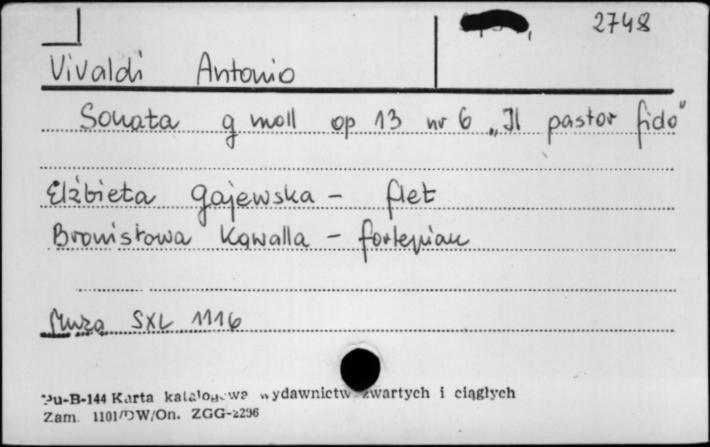 2748
Vivaldi Antonio
Sonata g moll op 13 nr 6 „Il pastor fido"
Elżbieta Gajewska - flet
Bronisława Kawalla - fortepian
Muza SXL 1116
Pu-B-144 Karta katalogowa wydawnictw zwartych i ciągłych
Zam. 1101/DW/On. ZGG-2296